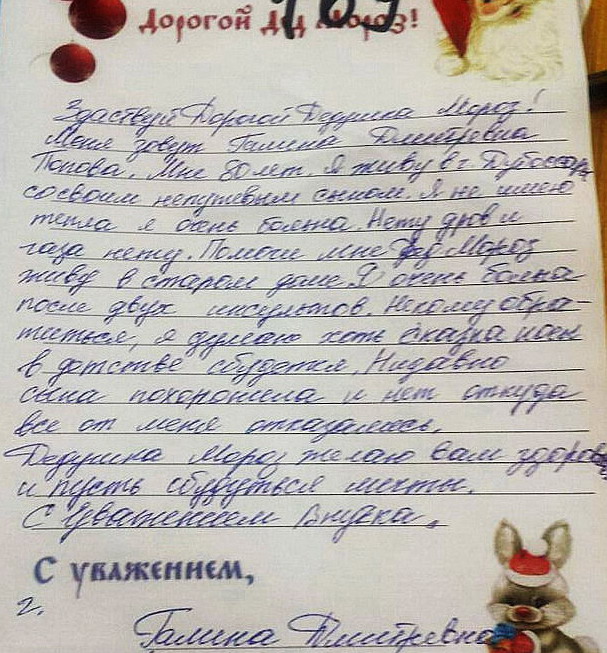 Дорогой Дед Мороз!
Здаствуй Дорогой Дедушка Мороз!
Меня зовут Галина Дмитревна
Попова. Мне 80 лет. Я живу в г. Дубоссары
со своим непутевым сыном. Я не имею
тепла я очень больна. Нету дров и
газа нету. Помоги мне Дед Мороз
живу в старом доме. Я очень больна
после двух инсультов. Некому обра-
титься, я думаю хоть сказка как
в детстве сбудется. Нидавно
сына похоронила и нет откуда
все от меня отказались.
Дедушка Мороз желаю вам здоровья
и пусть сбудуться мечты.
С Уважением Внучка.
С уважением,
г.
Галина Дмитревна